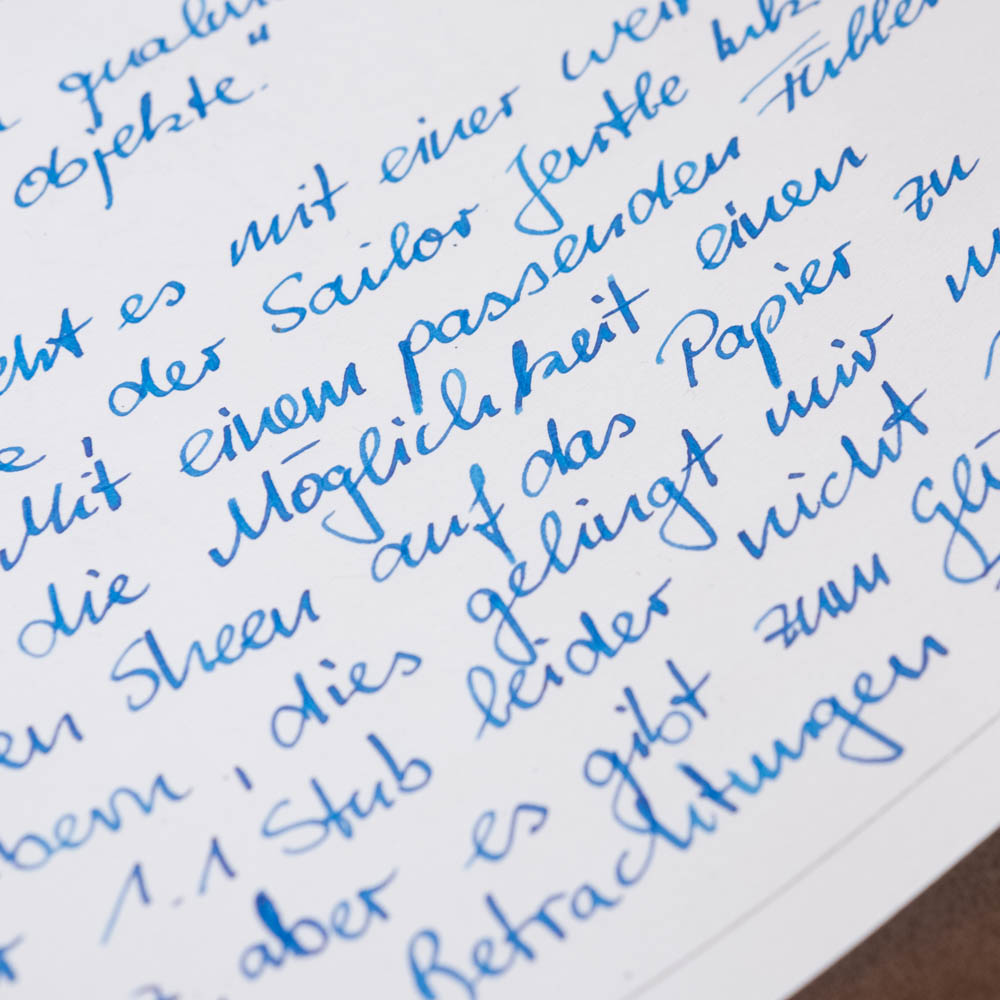 objekte."
es mit einer
der Sailor Jentle
Mit einem passenden Füller
die Möglichkeit einen
Sheen auf das Papier zu
, dies gelingt mir
1.1 Stub leider nicht
aber es gibt zum
Betrachtungen